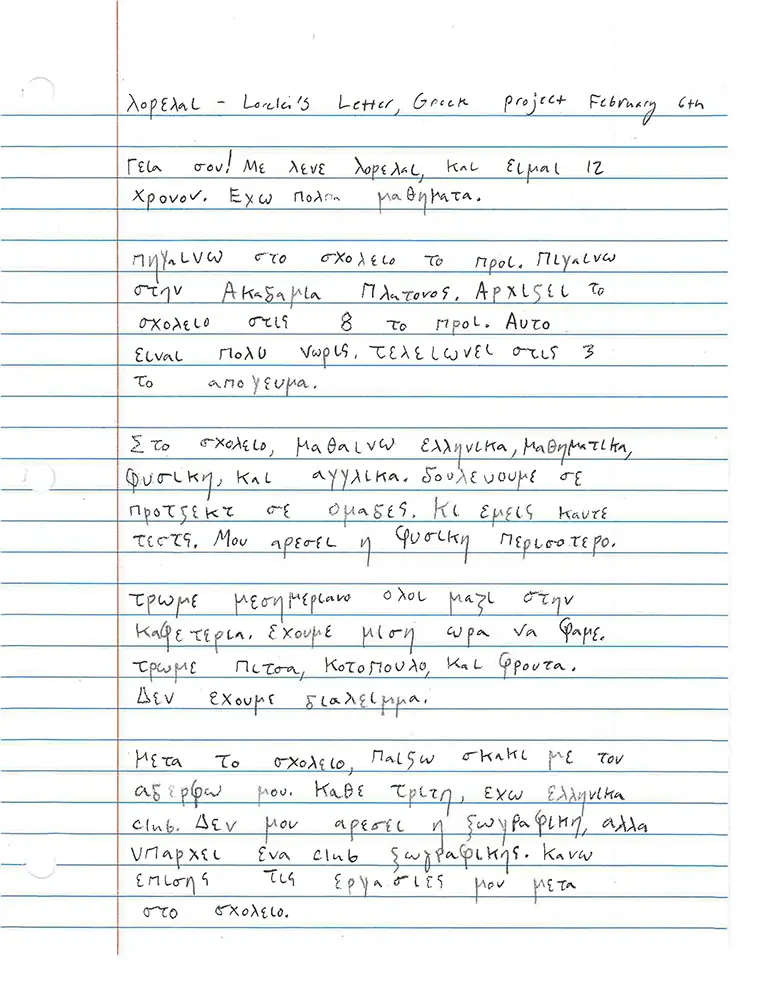 λορελαι - Lorelei's Letter, Greek project February 6th
Γεια σου! Με λενε λορελαι, και ειμαι 12
χρονον. Εχω πολλα μαθηματα.
πηγαινω στο σχολειο το προι. Πιγαινω
στην Ακαδαμια Πλατονος. Αρχιζει το
σχολειο στις 8 το προι. Αυτο
ειναι πολυ νωρις. τελειωνει στις 3
το απογευμα.
Στο σχολειο, μαθαινω ελληνικα, μαθηματικα,
φυσικη, και αγγλικα. δουλευουμε σε
προτζεκτ σε ομαδες. Κι εμεις καυτε
τεστς. Μου αρεσει η φυσικη περισοτερο.
τρωμε μεσημεριανο ολοι μαζι στην
καφετερια. εχουμε μιση ωρα να φαμε.
τρωμε πιτσα, κοτοπουλο, και φρουτα.
Δεν εχουμε διαλειμμα.
Μετα το σχολειο, παιζω σκακι με τον
αδερφω μου. καθε τριτη, εχω ελληνικα
club. Δεν μου αρεσει η ζωγραφικη, αλλα
υπαρχει ενα club ζωγραφικης. κανω
επισης τις εργασιες μου μετα
στο σχολειο.